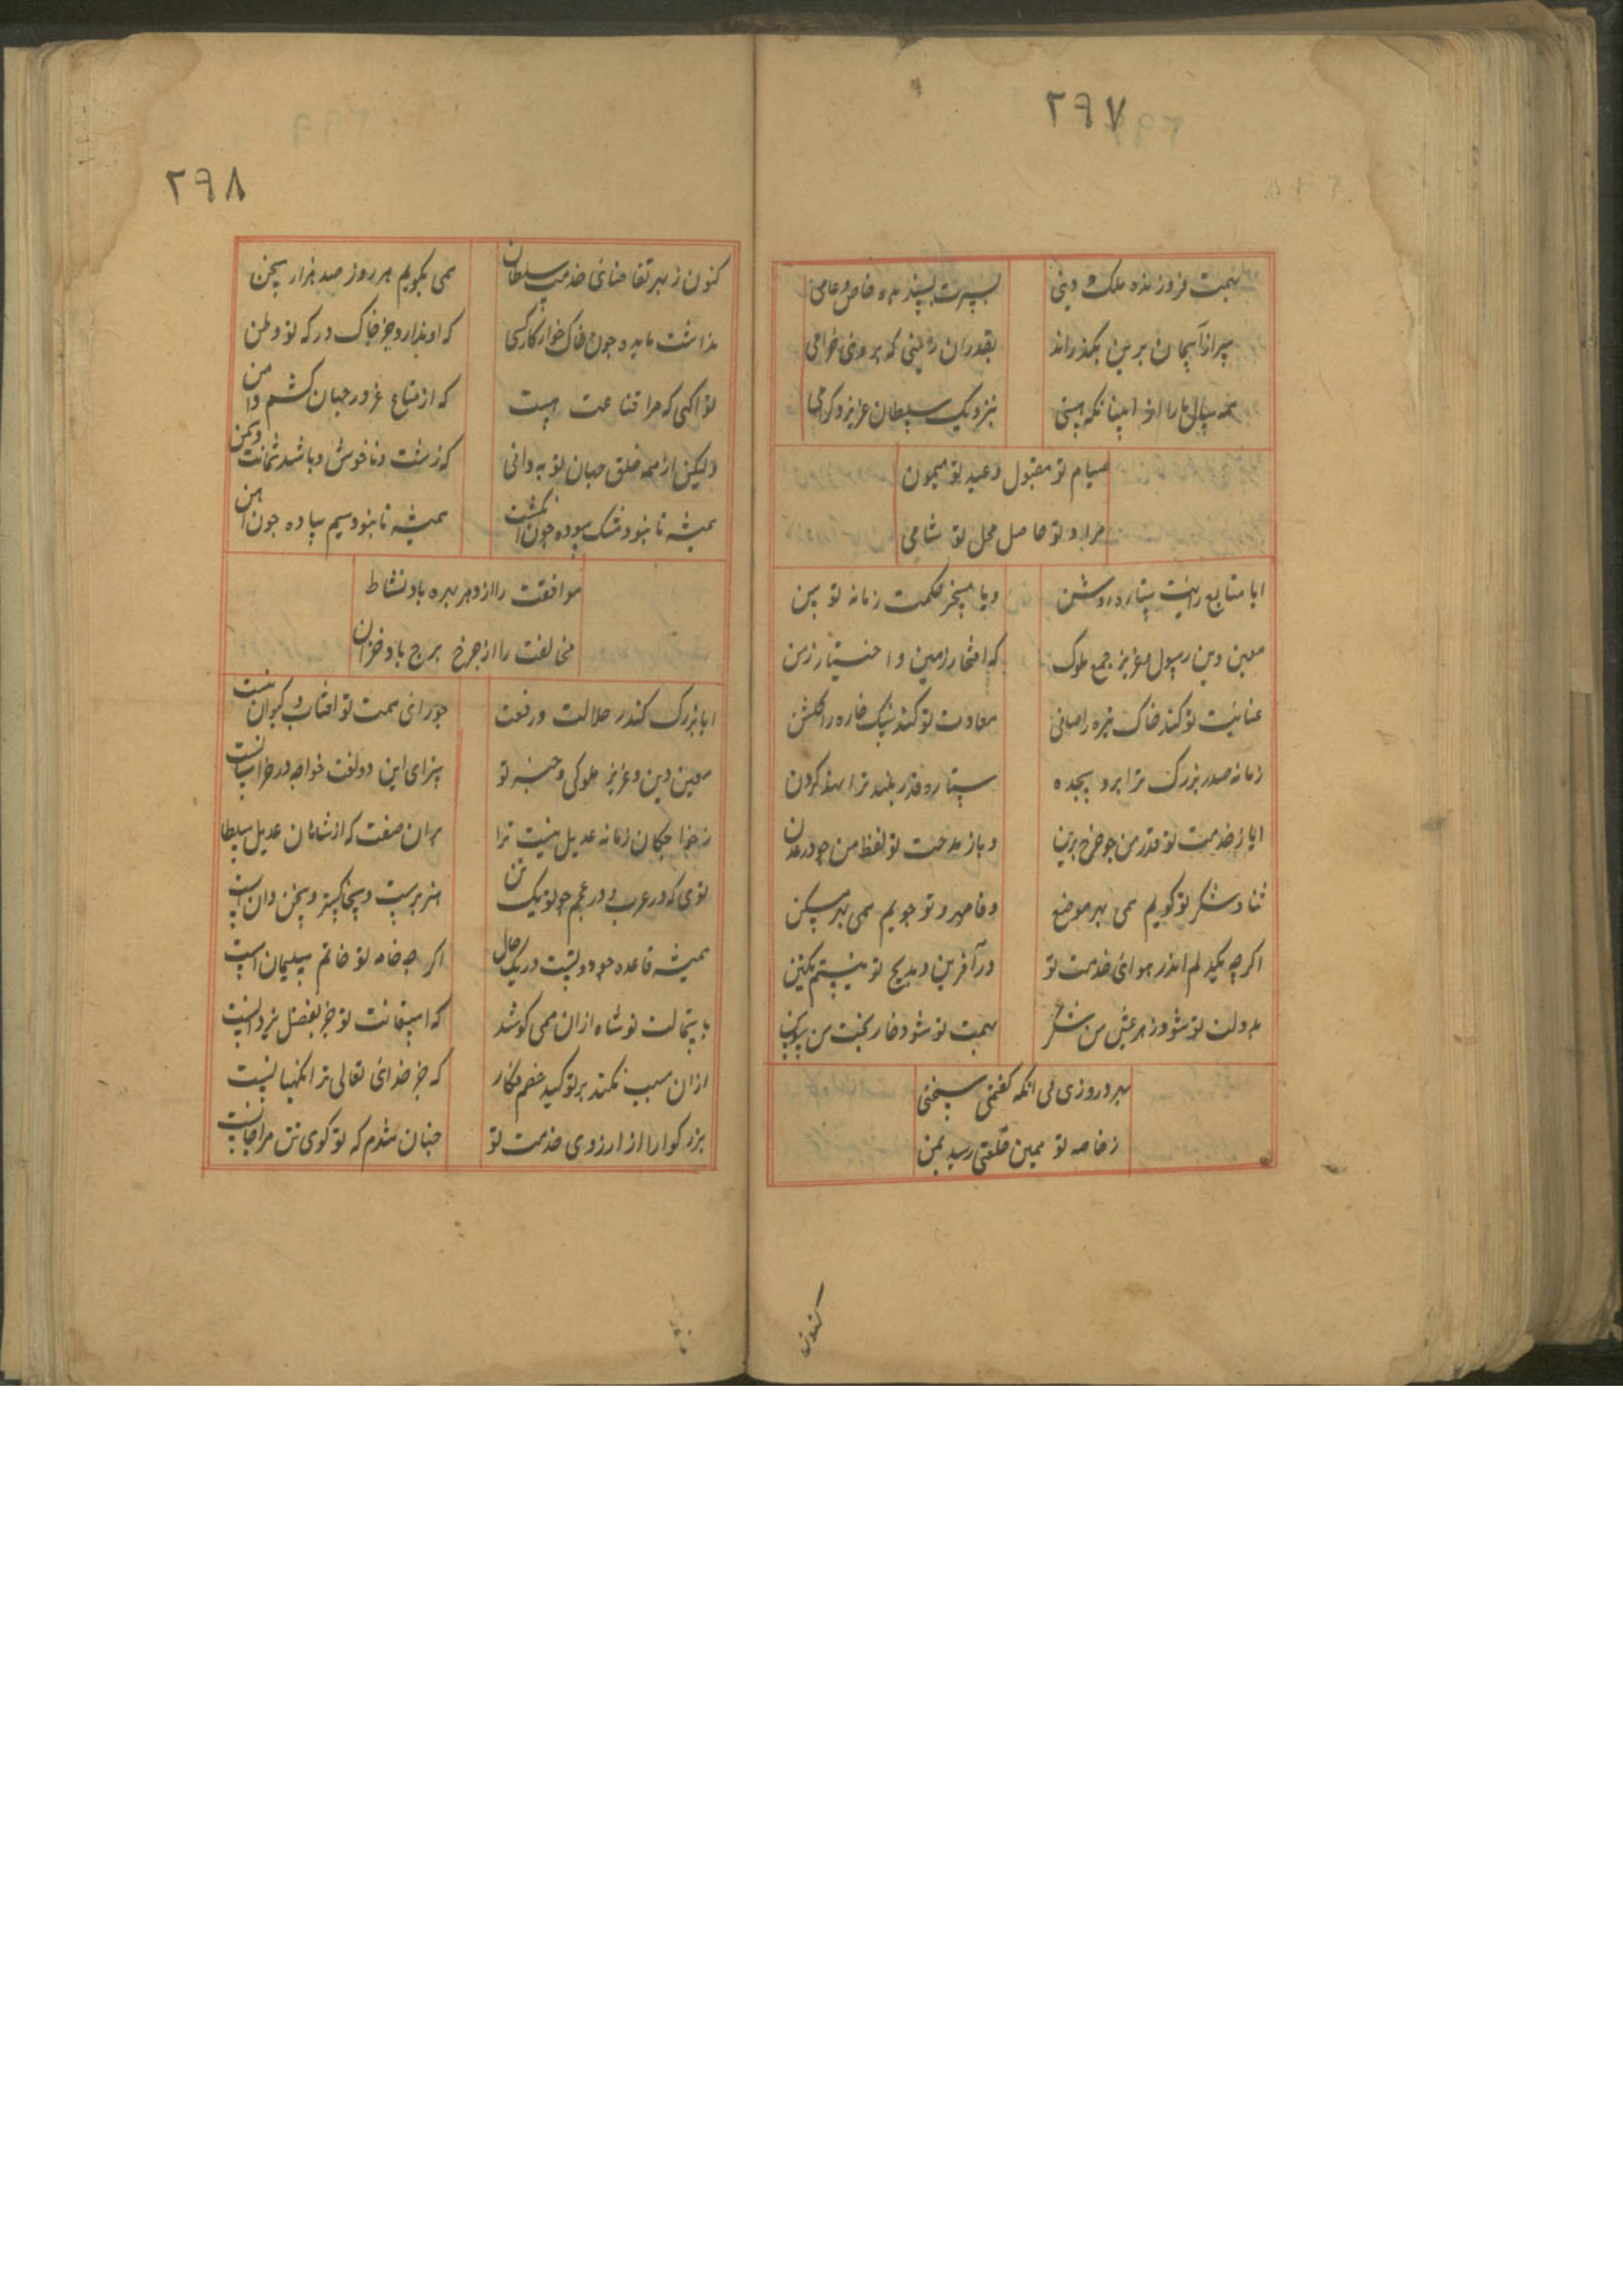 ۲۹۷
بهمت فروزنده ملک و دینی
بسیرت پسندیده خاص و عامی
سر از آسمان برین بگذراند
بقدر ان زمینی که بر وی خرامی
همه سال ما را از اینسان که هستی
بنزدیک سلطان عزیز و گرامی
صیام تو مقبول و عید تو میمون
مراد تو حاصل محل تو سامی
ایا متابع رایت ستاره روشن
ویا مسخر حکمت زمانه توسن
معین دین رسول و عزیز جمع ملوک
که افتخار زمین و اختیار زمن
عنایت تو کند خاک تیره را صافی
سعادت تو کند سنک خاره را گلشن
زمانه صدر بزرک ترا برد سجده
ستاره قدر بلند ترا نهد کردن
ایا ز خدمت تو قدر من چو چرخ برین
و یا ز مدحت تو لفظ من چو در عدن
ثنا و شکر تو کویم همی بهر موضع
وفا و مهر تو جویم همی بهر مسکن
اکر چه یکدلم اندر هوای خدمت تو
در آفرین و مدیح تو نیستم یکتن
بدولت تو شود زهر عیش من شکر
بهمت تو شود خار بخت من سوسن
بهر دو روزی بی انکه کفتمی سخنی
ز خاصه تو همین خلعتی رسید بمن
کنون
۲۹۸
کنون ز بهر تقاضای خدمت سلطان
همی بکویم هر روز صد هزار سخن
مذاشت مایده چون خاک خوار کار کسی
که او ندارد جز خاک درکه تو وطن
تو اکهی که مرا قناعت هست
که از متاع غرور جهان کشم دامن
ولیکن از همه خلق جهان تو به دانی
که زشت و ناخوش و باشد شماتت دشمن
همیشه تا نبود مشک سوده چون انکشت
همیشه تا نبود سیم ساده چون اهن
موافقت را از دهر بهره باد نشاط
مخالفت را از چرخ برج باد خزان
ایا بزرک کندر جلالت و رفعت
چو رای همت تو افتاب و کیوان نیست
معین دین و عزیز ملوکی و جز تو
سزای این دو لغت خواجه در خراسان نیست
ز خواجکان زمانه عدیل نیست ترا
بران صفت که از شاهان عدیل سلطان
توی که در عرب و در عجم چو تو یک تن
هنرپرست و سخاکستر و سخن دان نیست
همیشه قاعده جود و لیست در یک حال
اکر چه خامه تو خاتم سلیمان نیست
باستمالت تو شاه ازان همی کوشد
که استعانت تو جز بفضل یزدان نیست
ازان سبب نکند بر تو کید خصم مکار
که جز خدای تعالی ترا نکهبان نیست
بزرکوارا از ارزوی خدمت تو
چنان شدم که تو کوی تن مرا جان نیست